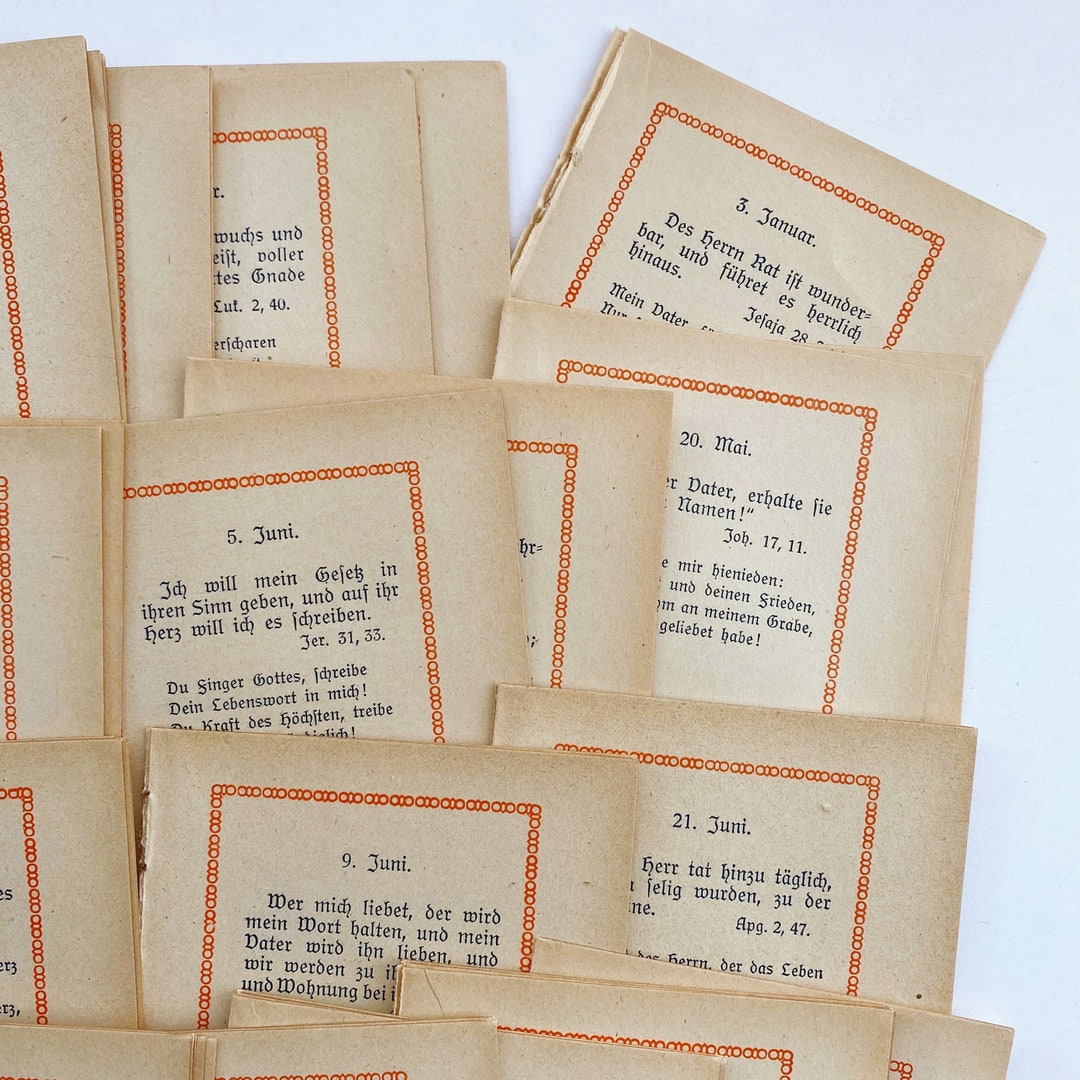 wuchs und
voller
Gnade
Luk. 2, 40.
3. Januar.
Des Herrn Rat ist wunder=
bar, und führet es herrlich
hinaus.
Jesaja 28
Mein Vater
20. Mai.
Vater, erhalte sie
Namen!“
Joh. 17, 11.
mir hienieden:
und deinen Frieden,
an meinem Grabe,
geliebet habe!
5. Juni.
Ich will mein Gesetz in
ihren Sinn geben, und auf ihr
Herz will ich es schreiben.
Jer. 31, 33.
Du Finger Gottes, schreibe
Dein Lebenswort in mich!
Du Kraft des Höchsten, treibe
9. Juni.
Wer mich liebet, der wird
mein Wort halten, und mein
Vater wird ihn lieben, und
wir werden zu
und Wohnung bei
21. Juni.
Herr tat hinzu täglich,
selig wurden, zu der
Apg. 2, 47.
des Herrn, der das Leben